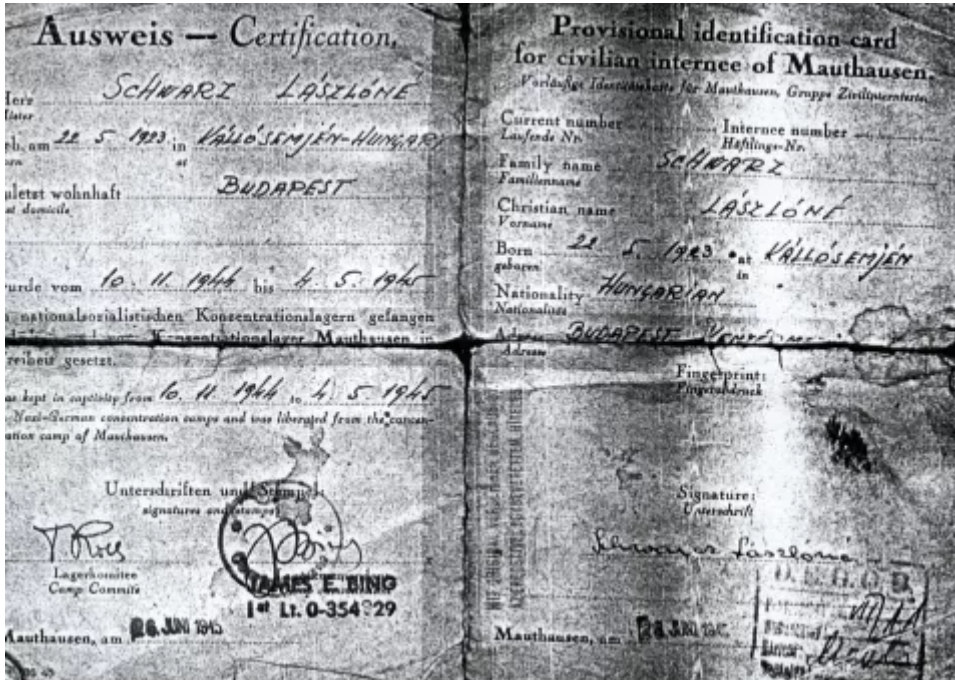 Ausweis — Certification.
SCHWARZ LÁSZLÓNÉ
22 5 1923 in KÁLLÓSEMJÉN-HUNGARY
at
wohnhaft BUDAPEST
domicile
vom 10. 11 1944 bis 4. 5. 1945
nationalsozialistischen Konzentrationslagern gefangen
Konzentrationslager Mauthausen in
gesetzt.
kept in captivity from 10. 11 1944 to 4. 5 1945
Nazi-German concentration camps and was liberated from the concen-
camp of Mauthausen.
Unterschriften und Stempel:
signatures and stamps
Lagerkomitee
Camp Committe
JAMES E. BING
1st Lt. O-354 29
Mauthausen, am 26. JUNI 1945
Provisional identification card
for civilian internee of Mauthausen.
Vorläufige Identitätskarte für Mauthausen, Gruppe Zivilinternierte.
Current number Internee number
Laufende Nr. Häftlings-Nr.
Family name SCHWARZ
Familienname
Christian name LÁSZLÓNÉ
Vorname
Born 22 5. 1923 at KÁLLÓSEMJÉN
geboren in
Nationality HUNGARIAN
Nationalität
BUDAPEST
Adresse
Fingerprint:
Fingerabdruck
Signature:
Unterschrift
Schwarz Lászlóné
D.E.G.O.B.
Mauthausen, am